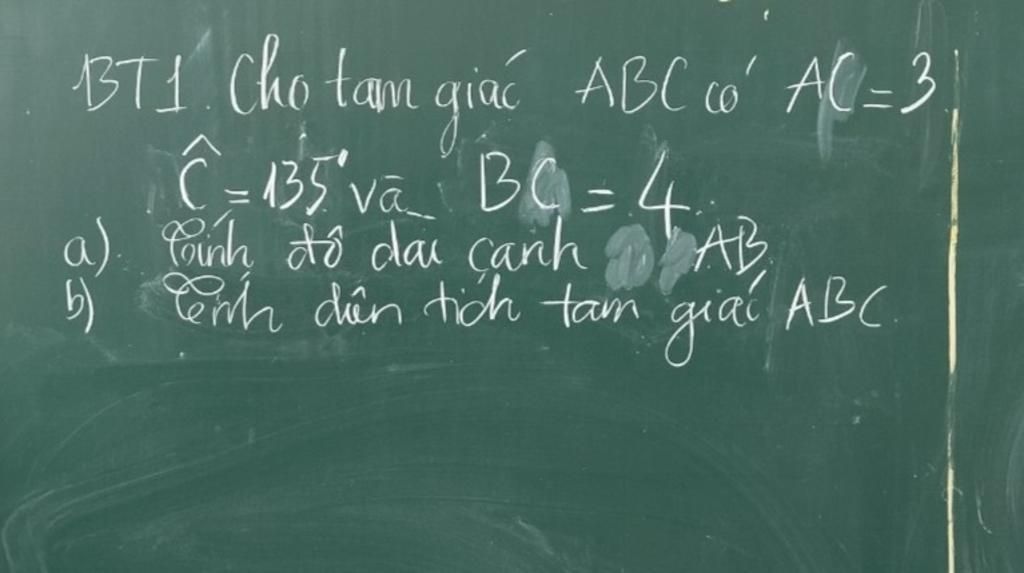 BT1. Cho tam giác ABC có AC = 3
Ĉ = 135° và BC = 4.
a). Tính độ dài cạnh AB.
b) Tính diện tích tam giác ABC